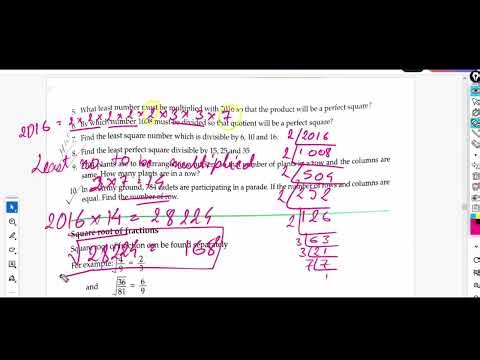 5. What least number must be multiplied with 2016 so that the product will be a perfect square?
2016 = 2×2×2×2×2×3×3×7
6. By which number 1608 must be divided so that quotient will be a perfect square?
7. Find the least square number which is divisible by 6, 10 and 16.
8. Find the least perfect square divisible by 15, 25 and 35
Least no to be multiplied
9. plants are to be arranged number of plants in a row and the columns are
same. How many plants are in a row?
2×7=14
10. In army ground, 784 cadets are participating in a parade. If the number of rows and columns are
equal. Find the number of row.
2016×14=28224
Square root of fractions
Square root of fraction can be found separately
√28224 = 168
For example: √4/9 = 2/3
and √36/81 = 6/9
2 2016
2 1008
2 504
2 252
2 126
3 63
3 21
7 7
1